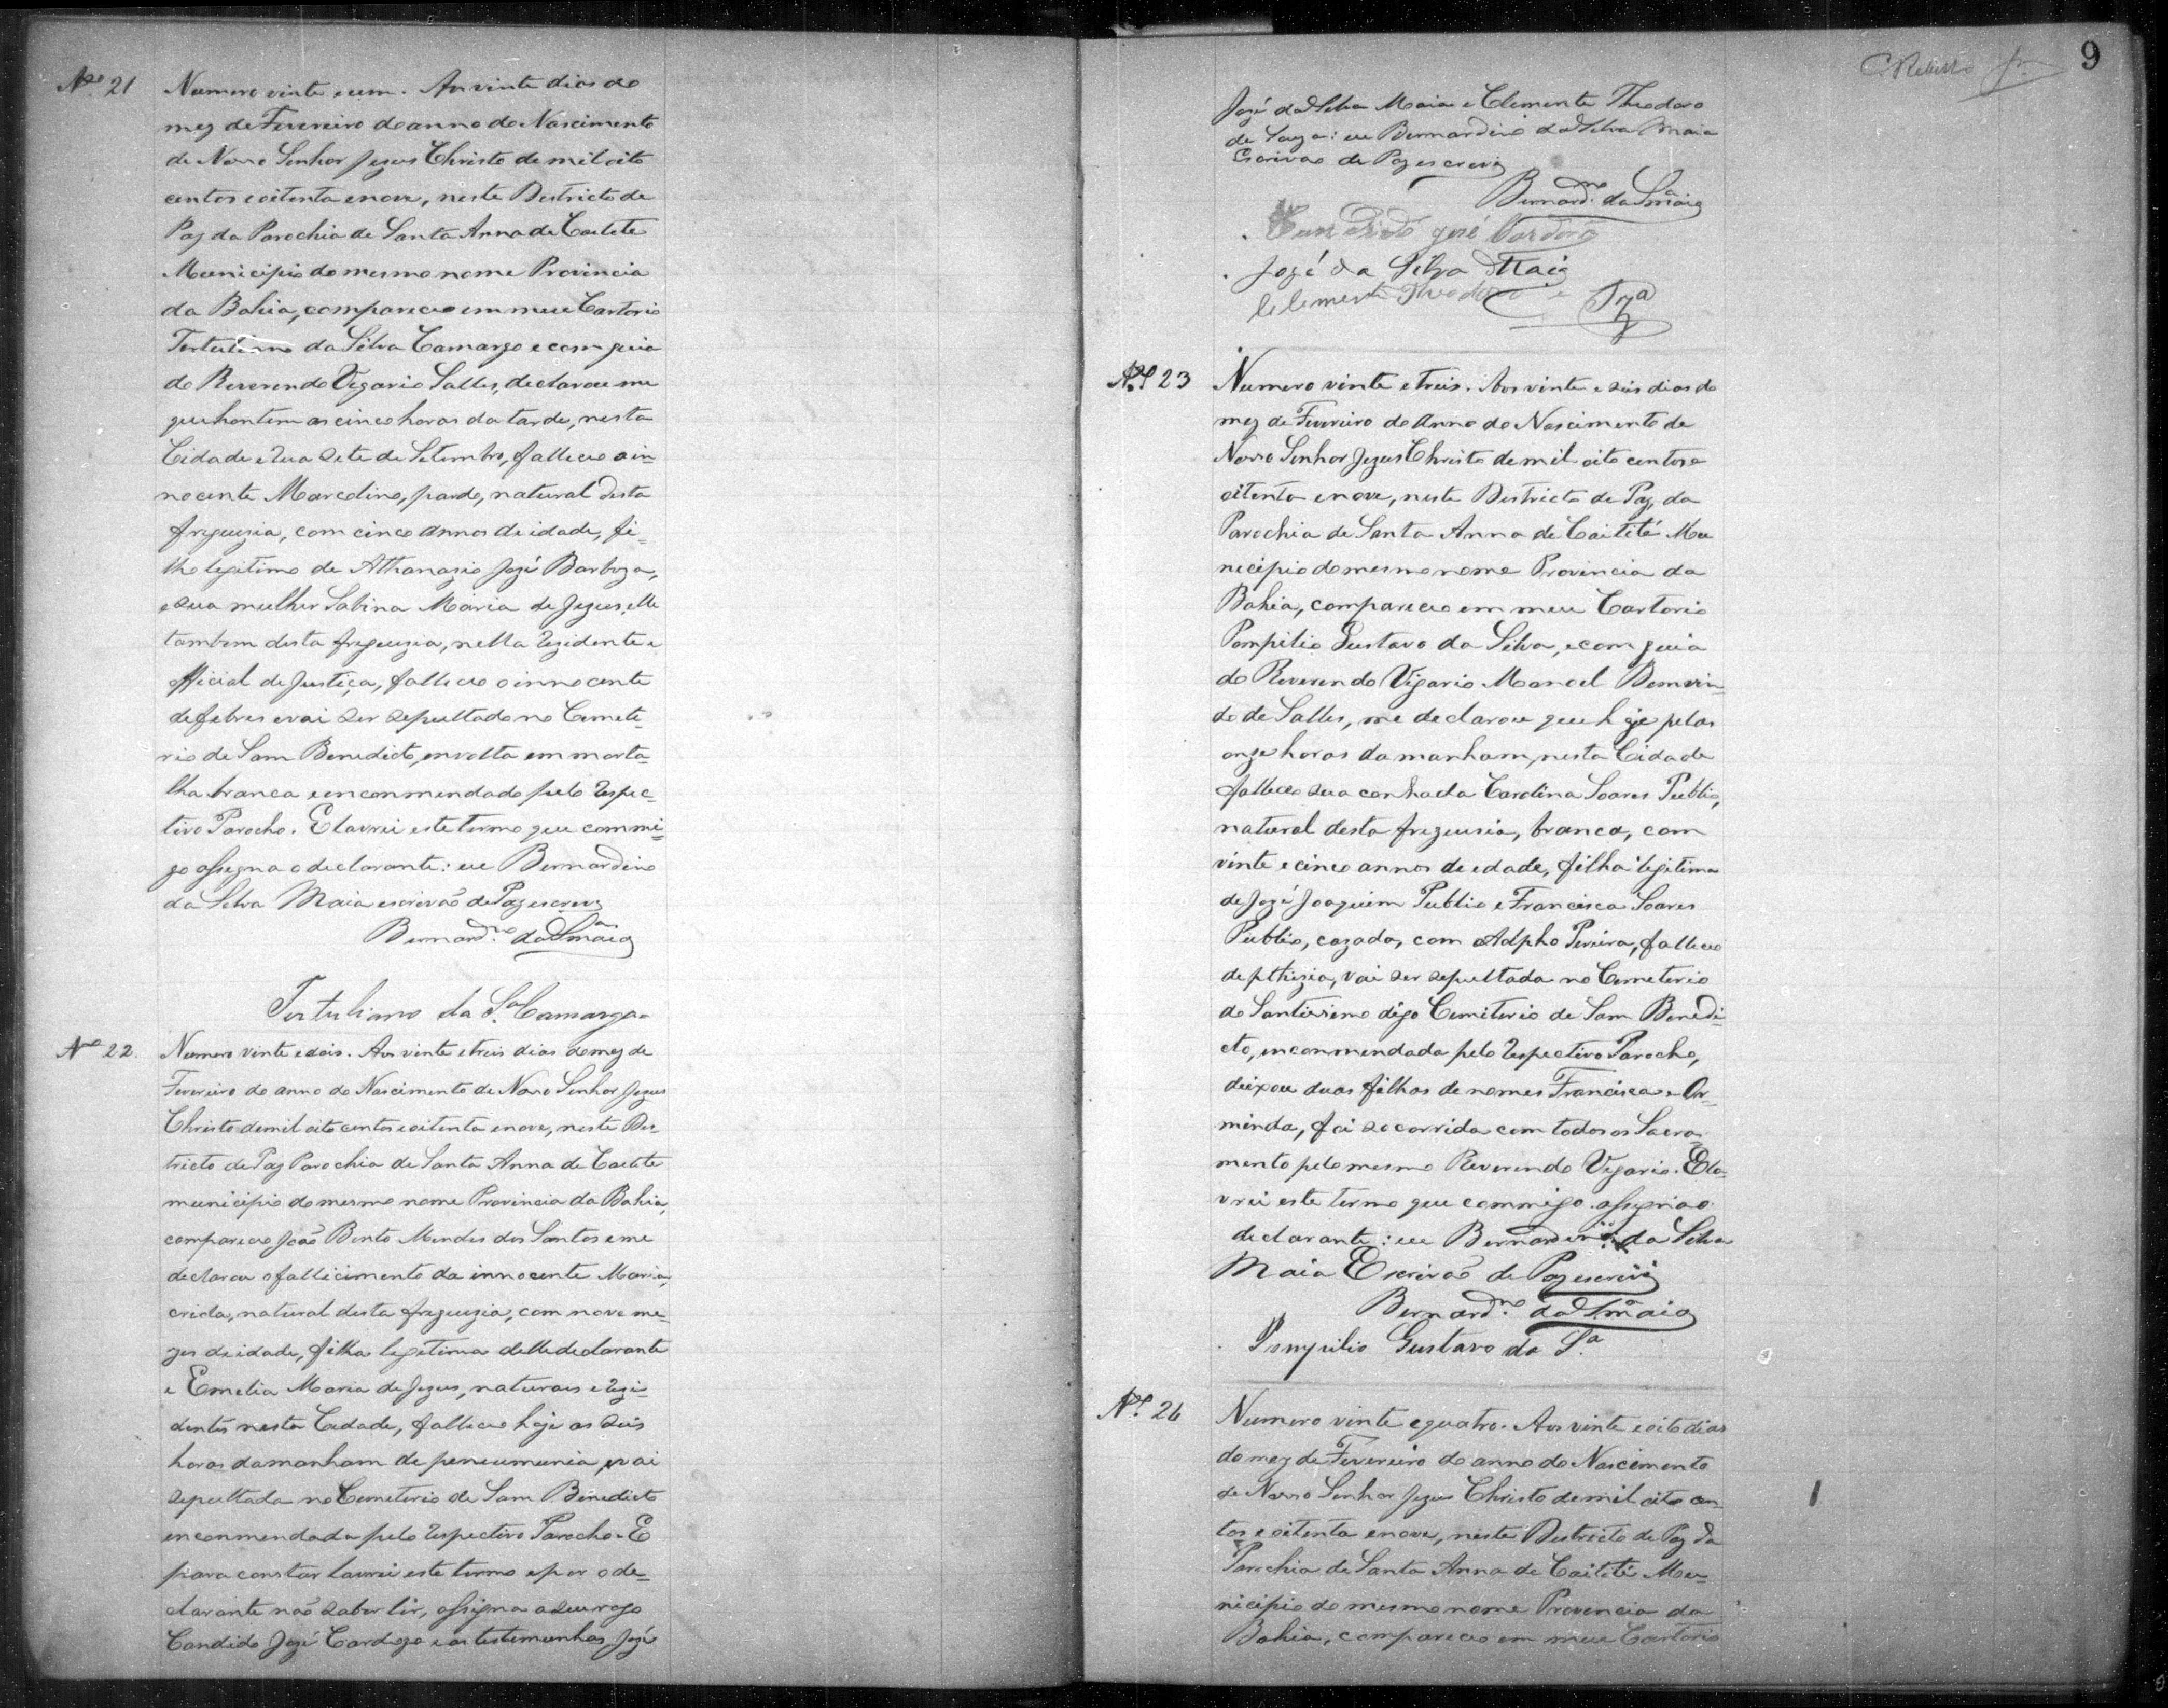 Nº 21
Numero vinte e um. Aos vinte dias do
mez de Fevereiro do anno do Nascimento
de Nosso Senhor Jezus Christo de mil oito
centos e oitenta e nove, neste Destricto de
Paz da Parochia de Santa Anna de Caetete
Municipio do mesmo nome Provincia
da Bahia, compareceo em meu Cartorio
Tertuliano da Silva Camargo e com guia
do Reverendo Vigario Salles, declarou me
que hontem as cinco horas da tarde, nesta
Cidade e rua Sete de Setembro, falleceo o in-
nocente Marcolino, pardo, natural desta
freguezia, com cinco annos de idade, fi-
lho legitimo de Athanazio Jozé Barboza,
e sua mulher Sabina Maria de Jezus, elle
tambem desta freguezia, nella rezidente e
official de Justiça, falleceo o innocente
de febres e vai ser sepultado no Cemete-
rio de Sam Benedicto, envolta em morta-
lha branca e enconmendado pelo respec-
tivo Parocho. E lavrei este termo que commi-
go assigna o declarante: eu Bernardino
da Silva Maia escrivão de Paz escrevi
Bernardno da Sa Maia
Tertuliano da Sa Camargo
Nº 22.
Numero vinte e dois. Aos vinte e treis dias do mez de
Fevereiro do anno do Nascimento de Nosso Senhor Jezus
Christo de mil oito centos e oitenta e nove, neste Des-
tricto de Paz Parochia de Santa Anna de Caetete
municipio do mesmo nome Provincia da Bahia,
compareceo João Bento Mendes dos Santos e me
declarou o fallicimento da innocente Maria,
criola, natural desta freguezia, com nove me-
zes de idade, filha legitima delle declarante
e Emelia Maria de Jezus, naturaes e rezi-
dentes nesta Cidade, falleceo hoje as seis
horas da manham de peneumunia, e vai
sepultada no Cemeterio de Sam Benedicto
enconmendada pelo respectivo Parocho. E
para constar lavrei este termo e por o de-
clarante não saber ler, assigna a seu rogo
Candido Jozé Cardozo e as testemunhas Jozé
9
Jozé da Silva Maia e Clemente Theodoro
de Souza: eu Bernardino da Silva Maia
Escrivão de Paz escrevi
Bernardno da Sa Maia
Candido José Cardozo
Jozé da Silva Maia
Clemente Theodoro e Sza
Nº 23
Numero vinte e treis. Aos vinte e seis dias do
mez de Fevereiro do anno do Nascimento de
Nosso Senhor Jezus Christo de mil oito centos e
oitenta e nove, neste Destricto de Paz, da
Parochia de Santa Anna de Caiteté Mu
nicipio do mesmo nome Provincia da
Bahia, compareceo em meu Cartorio
Pompilio Gustavo da Silva, e com guia
do Reverendo Vigario Manoel Bemvin-
do de Salles, me declarou que hoje pelas
onze horas da manham, nesta Cidade
falleceo sua conhada Carolina Soares Publio,
natural desta freguesia, branca, com
vinte e cinco annos de edade, filha legitima
de Jozé Joaquim Publio e Francisca Soares
Publio, cazada, com Adpho Pereira, falleceo
de pthizia, vai ser sepultada no Cemeterio
do Santissimo digo Cemiterio de Sam Benedi-
cto, enconmendada pelo respectivo Parocho,
deixou duas filhas de nomes Francisca e Or-
minda, foi socorrida com todos os Sacra-
mento pelo mesmo Reverendo Vigario. E la-
vrei este termo que commigo assigna o
declarante: eu Bernardino da Silva
Maia Escrivão de Paz escrevi
Bernardno da Sa Maia
Pompilio Gustavo da Sa
Nº 24
Numero vinte e quatro. Aos vinte e oito dias
do mez de Fevereiro do anno do Nascimento
de Nosso Senhor Jezus Christo de mil oito cen-
tos e oitenta e nove, neste Destricto de Paz da
Parochia de Santa Anna de Caiteté Mu-
nicipio do mesmo nome Provencia da
Bahia, compareceo em meu Cartorio